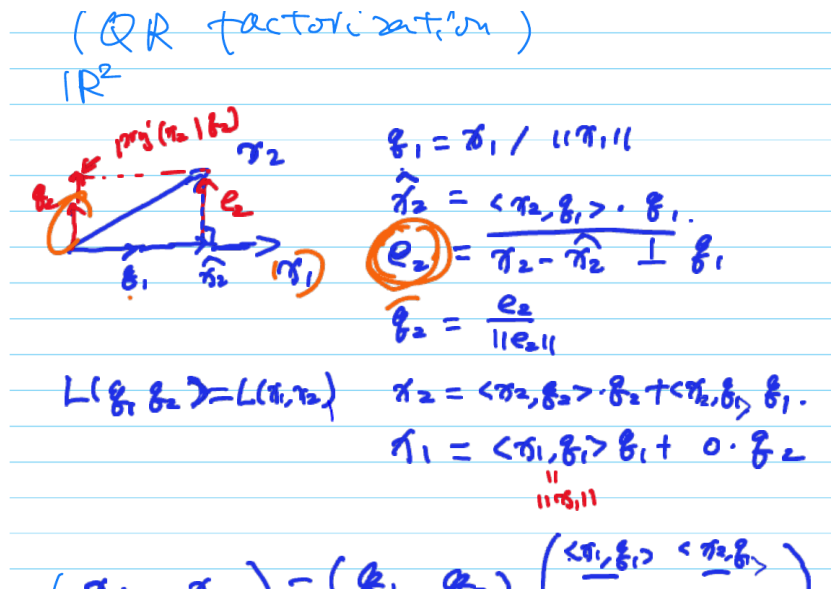 (QR factorization)
IR²
proj(x₂|q₂)
x₂
q₂
e₂
q₁
x̂₂
(x₁)
q₁ = x₁ / ||x₁||
x̂₂ = <x₂,q₁>·q₁.
e₂ = x₂ - x̂₂ ⊥ q₁
q₂ = e₂ / ||e₂||
L(q₁ q₂) = L(x₁,x₂)
x₂ = <x₂,q₂>·q₂ + <x₂,q₁> q₁.
x₁ = <x₁,q₁> q₁ + 0·q₂
||
||x₁||
( x₁ x₂ ) = ( q₁ q₂ ) ( <x₁,q₁> <x₂,q₁> )